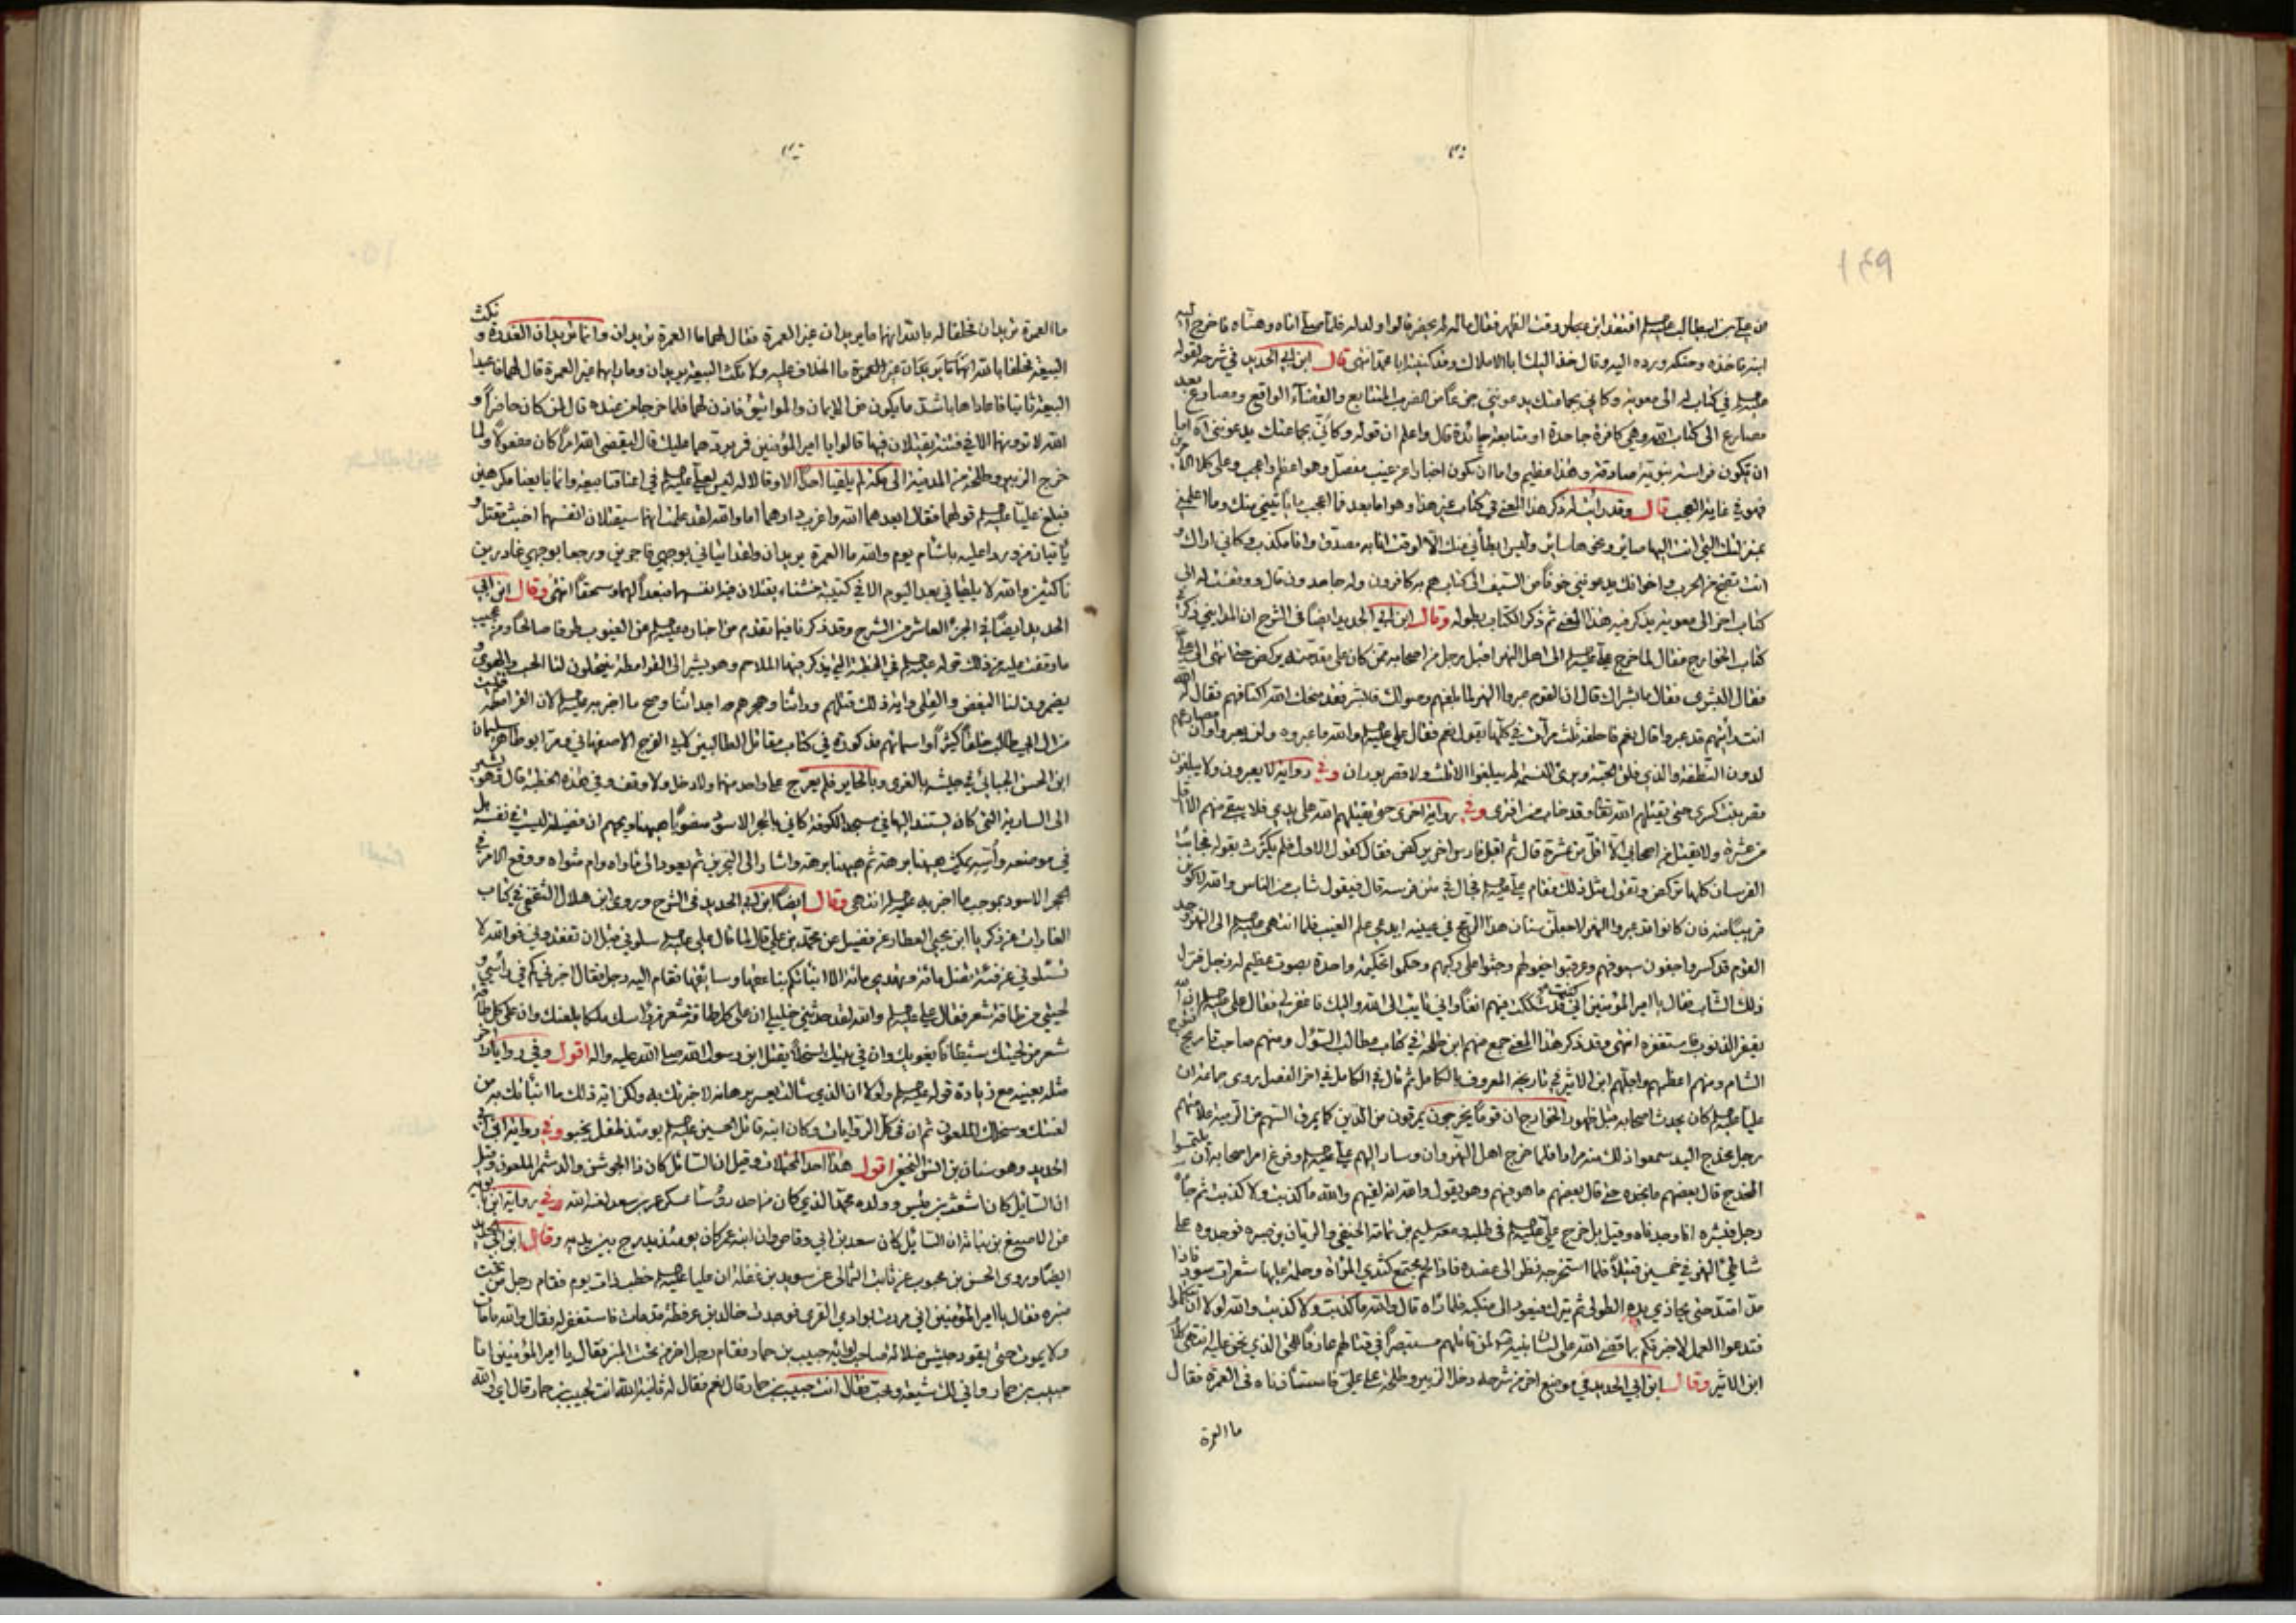 ١٤٩
ابنه فاخذه وحنكه ورده اليه وقال خذ اليك ابا الاملاك وقد كنيته ابا محمد انتهى قال ابن ابي الحديد في شرحه لقوله
عليه السلم في كتاب له الى معوية وكاني بجماعتك يدعونني جزعًا من الضرب المتتابع والقضاء الواقع ومصارع بعد
مصارع الى كتاب الله وهي كافرة جاحدة او متابعة حائدة قال واعلم ان قوله وكاني بجماعتك يدعونني اما
ان يكون فراسة نبوية صادقة وهذا عظيم واما ان يكون اخبارا عن غيب مفصل وهو اعظم واعجب وعلى كلا
فهو في غاية العجب قال وقد رايت له ذكر هذا المعنى في كتاب غير هذا وهو اما بعد فما اعجب ما ياتيني منك وما اعلمني
بمنزلتك التي انت اليها صاير ونحو ها ساير وليس ابطائي عنك الا لوقت انا به مصدق وانا مكذب وكاني اراك
انت تضج من الحرب واخوانك يدعونني خوفًا من السيف الى كتاب هم به كافرون وله جاحدون قال ووقفت له الى
كتاب اخر الى معوية يذكر فيه هذا المعنى ثم ذكر الكتاب بطوله وقال ابن ابي الحديد ايضا في الشرح ان المدايني ذكر
كتاب الخوارج فقال لما خرج علي عليه السلم الى اهل النهر اقبل رجل من اصحابه ممن كان على مقدمته يركض حتى انتهى الى علي
فقال البشرى فقال ما بشراك قال ان القوم عبروا النهر لما بلغهم وصولك فابشر فقد منحك الله اكتافهم فقال له
انت رأيتهم قد عبروا قال نعم فاحلفه ثلث مرات في كلها يقول نعم فقال علي عليه السلم والله ما عبروه ولن يعبروه وان مصارعهم
لدون النطفة والذي فلق الحبة وبرئ النسمة لن يبلغوا الاثلث ولا قصر بوران وفي رواية لا يعبرون ولا يبلغون
قصر بنت كسرى حتى يقتلهم الله تعالى وقد خاب من افترى وفي رواية اخرى حتى يقتلهم الله على يدي فلا يبقى منهم الا اقل
من عشرة ولا يقتل من اصحابي الا اقل من عشرة قال ثم اقبل فارس اخر يركض فقال كقول الاول فلم يكترث بقوله فجاءت
الفرسان كلها تركض وتقول مثل ذلك فقام علي عليه السلم فجال في متن فرسه قال فيقول شاب من الناس والله لاكونن
قريبًا منه فان كانوا قد عبروا النهر لاجعلن سنان هذا الرمح في عينيه ايدعي علم الغيب فلما انتهى عليه السلم الى النهر وجد
القوم قد كسروا جفون سيوفهم وعرقبوا خيولهم وجثوا على ركبهم وحكموا تحكيمة واحدة بصوت عظيم له زجل فنزل
ذلك الشاب فقال يا امير المؤمنين اني كنت قد شككت فيهم انفًا واني تايب الى الله واليك فاغفر لي فقال علي عليه السلم ان الله
يغفر الذنوب فاستغفره انتهى وقد ذكر هذا المعنى جمع منهم ابن طلحة في كتاب مطالب السؤل ومنهم صاحب تاريخ فتوح
الشام ومنهم اعظمهم واجلهم ابن الاثير في تاريخه المعروف بالكامل ثم قال في الكامل في اخر الفصل روى جماعة ان
عليا عليه السلم كان يحدث اصحابه قبل ظهور الخوارج ان قوما يخرجون يمرقون من الدين كما يمرق السهم من الرمية علامتهم
رجل مخدج اليد سمعوا ذلك منه مرارا فلما خرج اهل النهروان وسار اليهم علي عليه السلم وفرغ امر اصحابه ان يلتمسوا
المخدج قال بعضهم ما نجده حتى قال بعضهم ما هو فيهم وهو يقول والله انه لفيهم والله ما كذبت ولا كذبت ثم جاء
رجل فبشره انا وجدناه وقيل بل خرج علي عليه السلم في طلبه ومعه سليم بن ثمامة الحنفي والريان بن صبره فوجدوه على
شاطئ النهر في خمسين قتيلًا فلما استخرجه نظر الى عضده فاذا لحم مجتمع كثدي المرأة وحلمة عليها شعرات سود فاذا
مدت امتدت حتى يحاذي يده الطولى ثم تترك فتعود الى منكبه فلما راه قال والله ما كذبت ولا كذبت والله لولا ان تتكلوا
فتدعوا العمل لاخبرتكم بما قضى الله على لسان نبيه لمن قاتلهم مستبصرًا في قتالهم عارفًا للحق الذي نحن عليه انتهى كلام
ابن الاثير وقال ابن ابي الحديد في موضع اخر من شرحه دخل الزبير وطلحة على علي فاستأذناه في العمرة فقال
ما العمرة
ما العمرة تريدان فحلفا له بالله انهما ما يريدان غير العمرة فقال لهما ما العمرة تريدان وانما تريدان الغدرة ونكث
البيعة فحلفا بالله انهما ما يريدان غير العمرة ما الخلاف عليه ولا نكث البيعة يريدان وما رايهما غير العمرة قال لهما فاعيدا
البيعة ثانيا فاعاداها باشد ما يكون من الايمان والمواثيق فاذن لهما فلما خرجا من عنده قال لمن كان حاضرًا و
الله لا ترونهما الا في فتنة يقتتلان فيها قالوا يا امير المؤمنين فمر بردهما عليك قال ليقضي الله امرًا كان مفعولًا ولما
خرج الزبير وطلحة من المدينة الى مكة لم يلقيا احدًا الا وقالا له ليس لعلي عليه السلم في اعناقنا بيعة وانما بايعنا مكرهين
فبلغ عليًا عليه السلم قولهما فقال ابعدهما الله واغرب دارهما اما والله لقد علمت انهما سيقتلان انفسهما اخبث مقتل و
يأتيان من وردا عليه باشأم يوم والله ما العمرة يريدان ولقد اتياني بوجهي فاجرين ورجعا بوجهي غادرين
ناكثين والله لا يلقياني بعد اليوم الا في كتيبة خشناء يقتلان فيها انفسهما فبعدًا لهما وسحقًا انتهى وقال ابن ابي
الحديد ايضًا في الجزء العاشر من الشرح وقد ذكرنا فيما تقدم من اخباره عليه السلم عن الغيوب طرفا صالحًا ومن عجيب
ما وقفت عليه من ذلك قوله عليه السلم في الخطبة التي يذكر فيها الملاحم وهو يشير الى القرامطة ينتحلون لنا الحب والهوى و
يضمرون لنا البغض والقلى واية ذلك قتلهم وراثنا وهجرهم احداثنا وصح ما اخبر به عليه السلم لان القرامطة قتلت
من ال ابي طالب خلقًا كثيرًا واسماؤهم مذكورة في كتاب مقاتل الطالبيين لابي الفرج الاصفهاني ومر ابو طاهر سليمان
ابن الحسن الجنابي في جيشه بالغري وبالحاير فلم يعرج على واحد منهما ولا دخل ولا وقف وفي هذه الخطبة قال وهو يشير
الى السارية التي كان يستند اليها في مسجد الكوفة كاني بالحجر الاسود منصوبًا هيهنا ويحهم ان فضيلته ليست في نفسه بل
في موضعه واسه يمكث هيهنا برهة ثم هيهنا برهة واشار الى البحرين ثم يعود الى مأواه وام مثواه ووقع الامر في
الحجر الاسود بموجب ما اخبر به عليه السلم انتهى وقال ايضًا ابن ابي الحديد في الشرح وروى ابن هلال الثقفي في كتاب
الغارات عن زكريا ابن يحيى العطار عن فضيل عن محمد بن علي قال لما قال علي عليه السلم سلوني قبل ان تفقدوني فوالله لا
تسئلوني عن فئة تضل مائة وتهدي مائة الا انبأتكم بناعقها وسائقها فقام اليه رجل فقال اخبرني كم في رأسي و
لحيتي من طاقة شعر فقال علي عليه السلم والله لقد حدثني خليلي ان على كل طاقة شعر من راسك ملكا يلعنك وان على كل طاقة
شعر من لحيتك شيطانا يغويك وان في بيتك سخلًا يقتل ابن رسول الله صلى الله عليه واله اقول وفي روايات اخر
مثله بعينه مع زيادة قوله عليه السلم ولولا ان الذي سالت يعسر برهانه لاخبرتك به ولكن اية ذلك ما انبأتك به من
لعنتك وسخلك الملعون ثم ان في كل الروايات وكان ابنه قاتل الحسين عليه السلم يومئذ طفل يحبو وفي رواية ابن ابي
الحديد وهو سنان بن انس النخعي اقول هذا احد المحتملات وقيل ان السائل كان ذا الجوشن والد شمر الملعون وقيل
ان السايل كان اشعث بن قيس وولده محمد الذي كان من احد رؤسا عسكر عمر بن سعد لعنه الله وفي رواية ابن بابويه
عن الاصبغ بن نباته ان السائل كان سعد بن ابي وقاص وان ابنه عمر كان يومئذ يدرج بين يديه وقال ابن ابي الحديد
ايضًا وروى الحسن بن محبوب عن ثابت الثمالي عن سويد بن غفلة ان عليا عليه السلم خطب ذات يوم فقام رجل من تحت
منبره فقال يا امير المؤمنين اني مررت بوادي القرى فوجدت خالد بن عرفطة قد مات فاستغفر له فقال والله ما مات
ولا يموت حتى يقود جيش ضلالة صاحب لوائه حبيب بن حمار فقام رجل اخر من تحت المنبر فقال يا امير المؤمنين انا
حبيب بن حمار واني لك شيعة ومحب فقال انت حبيب بن حمار قال نعم فقال له ثانية الله انت لحبيب بن حمار قال اي والله